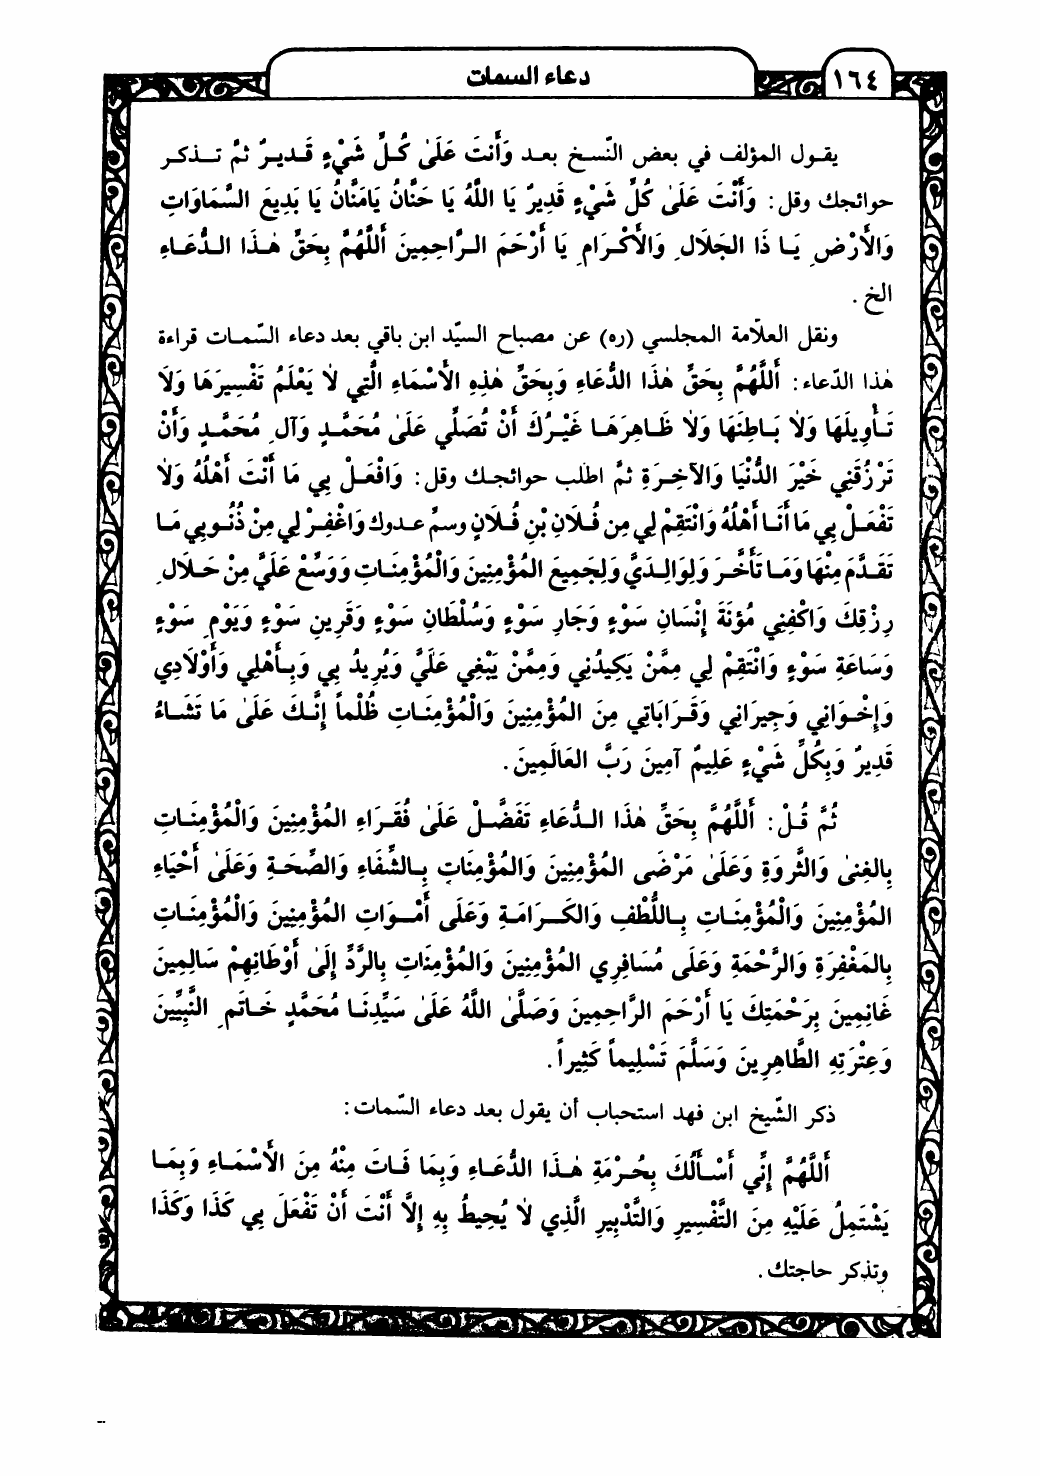 ١٦٤
دعاء السمات
يقول المؤلف في بعض النّسخ بعد وَأَنتَ عَلَىٰ كُلِّ شَيْءٍ قَديرٌ ثمَّ تذكر
حوائجك وقل: وَأَنْتَ عَلَىٰ كُلِّ شَيْءٍ قَدِيرٌ يَا اللَّهُ يَا حَنَّانُ يَامَنَّانُ يَا بَدِيعَ السَّمَاوَاتِ
وَالأَرْضِ يَا ذَا الجَلَالِ وَالأَكْرَامِ يَا أَرْحَمَ الرَّاحِمِينَ أَللَّهُمَّ بِحَقِّ هٰذَا الدُّعَاءِ
الخ.
ونقل العلّامة المجلسي (ره) عن مصباح السيّد ابن باقي بعد دعاء السّمات قراءة
هٰذا الدّعاء: أَللَّهُمَّ بِحَقِّ هٰذَا الدُّعَاءِ وَبِحَقِّ هٰذِهِ الأَسْمَاءِ الَّتِي لاَ يَعْلَمُ تَفْسِيرَهَا وَلاَ
تَأْوِيلَهَا وَلاَ بَاطِنَهَا وَلاَ ظَاهِرَهَا غَيْرُكَ أَنْ تُصَلِّي عَلَىٰ مُحَمَّدٍ وَآلِ مُحَمَّدٍ وَأَنْ
تَرْزُقَنِي خَيْرَ الدُّنْيَا وَالآخِرَةِ ثمَّ اطلب حوائجك وقل: وَافْعَلْ بِي مَا أَنْتَ أَهْلُهُ وَلاَ
تَفْعَلْ بِي مَا أَنَا أَهْلُهُ وَانْتَقِمْ لِي مِن فُلَانِ بْنِ فُلَانٍ وسمِّ عدوك وَاغْفِرْ لِي مِنْ ذُنُوبِي مَا
تَقَدَّمَ مِنْهَا وَمَا تَأَخَّرَ وَلِوَالِدَيَّ وَلِجَمِيعِ المُؤْمِنِينَ وَالْمُؤْمِنَاتِ وَوَسِّعْ عَلَيَّ مِنْ حَلَالِ
رِزْقِكَ وَاكْفِنِي مُؤنَةَ إِنْسَانِ سَوْءٍ وَجَارِ سَوْءٍ وَسُلْطَانِ سَوْءٍ وَقَرِينِ سَوْءٍ وَيَوْمِ سَوْءٍ
وَسَاعَةِ سَوْءٍ وَانْتَقِمْ لِي مِمَّنْ يَكِيدُنِي وَمِمَّنْ يَبْغِي عَلَيَّ وَيُرِيدُ بِي وَبِأَهْلِي وَأَوْلَادِي
وَإِخْوَانِي وَجِيرَانِي وَقَرَابَاتِي مِنَ المُؤْمِنِينَ وَالْمُؤْمِنَاتِ ظُلْماً إِنَّكَ عَلَىٰ مَا تَشَاءُ
قَدِيرٌ وَبِكُلِّ شَيْءٍ عَلِيمٌ آمِينَ رَبَّ العَالَمِينَ.
ثُمَّ قُلْ: أَللَّهُمَّ بِحَقِّ هٰذَا الدُّعَاءِ تَفَضَّلْ عَلَىٰ فُقَرَاءِ المُؤْمِنِينَ وَالْمُؤْمِنَاتِ
بِالغِنىٰ وَالثَّروَةِ وَعَلَىٰ مَرْضَى المُؤْمِنِينَ وَالمُؤْمِنَاتِ بِالشِّفَاءِ وَالصِّحَةِ وَعَلَىٰ أَحْيَاءِ
المُؤْمِنِينَ وَالْمُؤْمِنَاتِ بِاللُّطْفِ وَالكَرَامَةِ وَعَلَى أَمْوَاتِ المُؤْمِنِينَ وَالْمُؤْمِنَاتِ
بِالمَغْفِرَةِ وَالرَّحْمَةِ وَعَلَى مُسَافِرِي المُؤْمِنِينَ وَالمُؤْمِنَاتِ بِالرَّدِّ إِلَىٰ أَوْطَانِهِمْ سَالِمِينَ
غَانِمِينَ بِرَحْمَتِكَ يَا أَرْحَمَ الرَّاحِمِينَ وَصَلَّىٰ اللَّهُ عَلَىٰ سَيِّدِنَا مُحَمَّدٍ خَاتَمِ النَّبِيِّينَ
وَعِتْرَتِهِ الطَّاهِرِينَ وَسَلَّمَ تَسْلِيماً كَثِيراً.
ذكر الشّيخ ابن فهد استحباب أن يقول بعد دعاء السّمات:
أَللَّهُمَّ إِنِّي أَسْأَلُكَ بِحُرْمَةِ هٰذَا الدُّعَاءِ وَبِمَا فَاتَ مِنْهُ مِنَ الأَسْمَاءِ وَبِمَا
يَشْتَمِلُ عَلَيْهِ مِنَ التَّفْسِيرِ وَالتَّدْبِيرِ الَّذِي لاَ يُحِيطُ بِهِ إِلاَّ أَنْتَ أَنْ تَفْعَلَ بِي كَذَا وَكَذَا
وتذكر حاجتك.